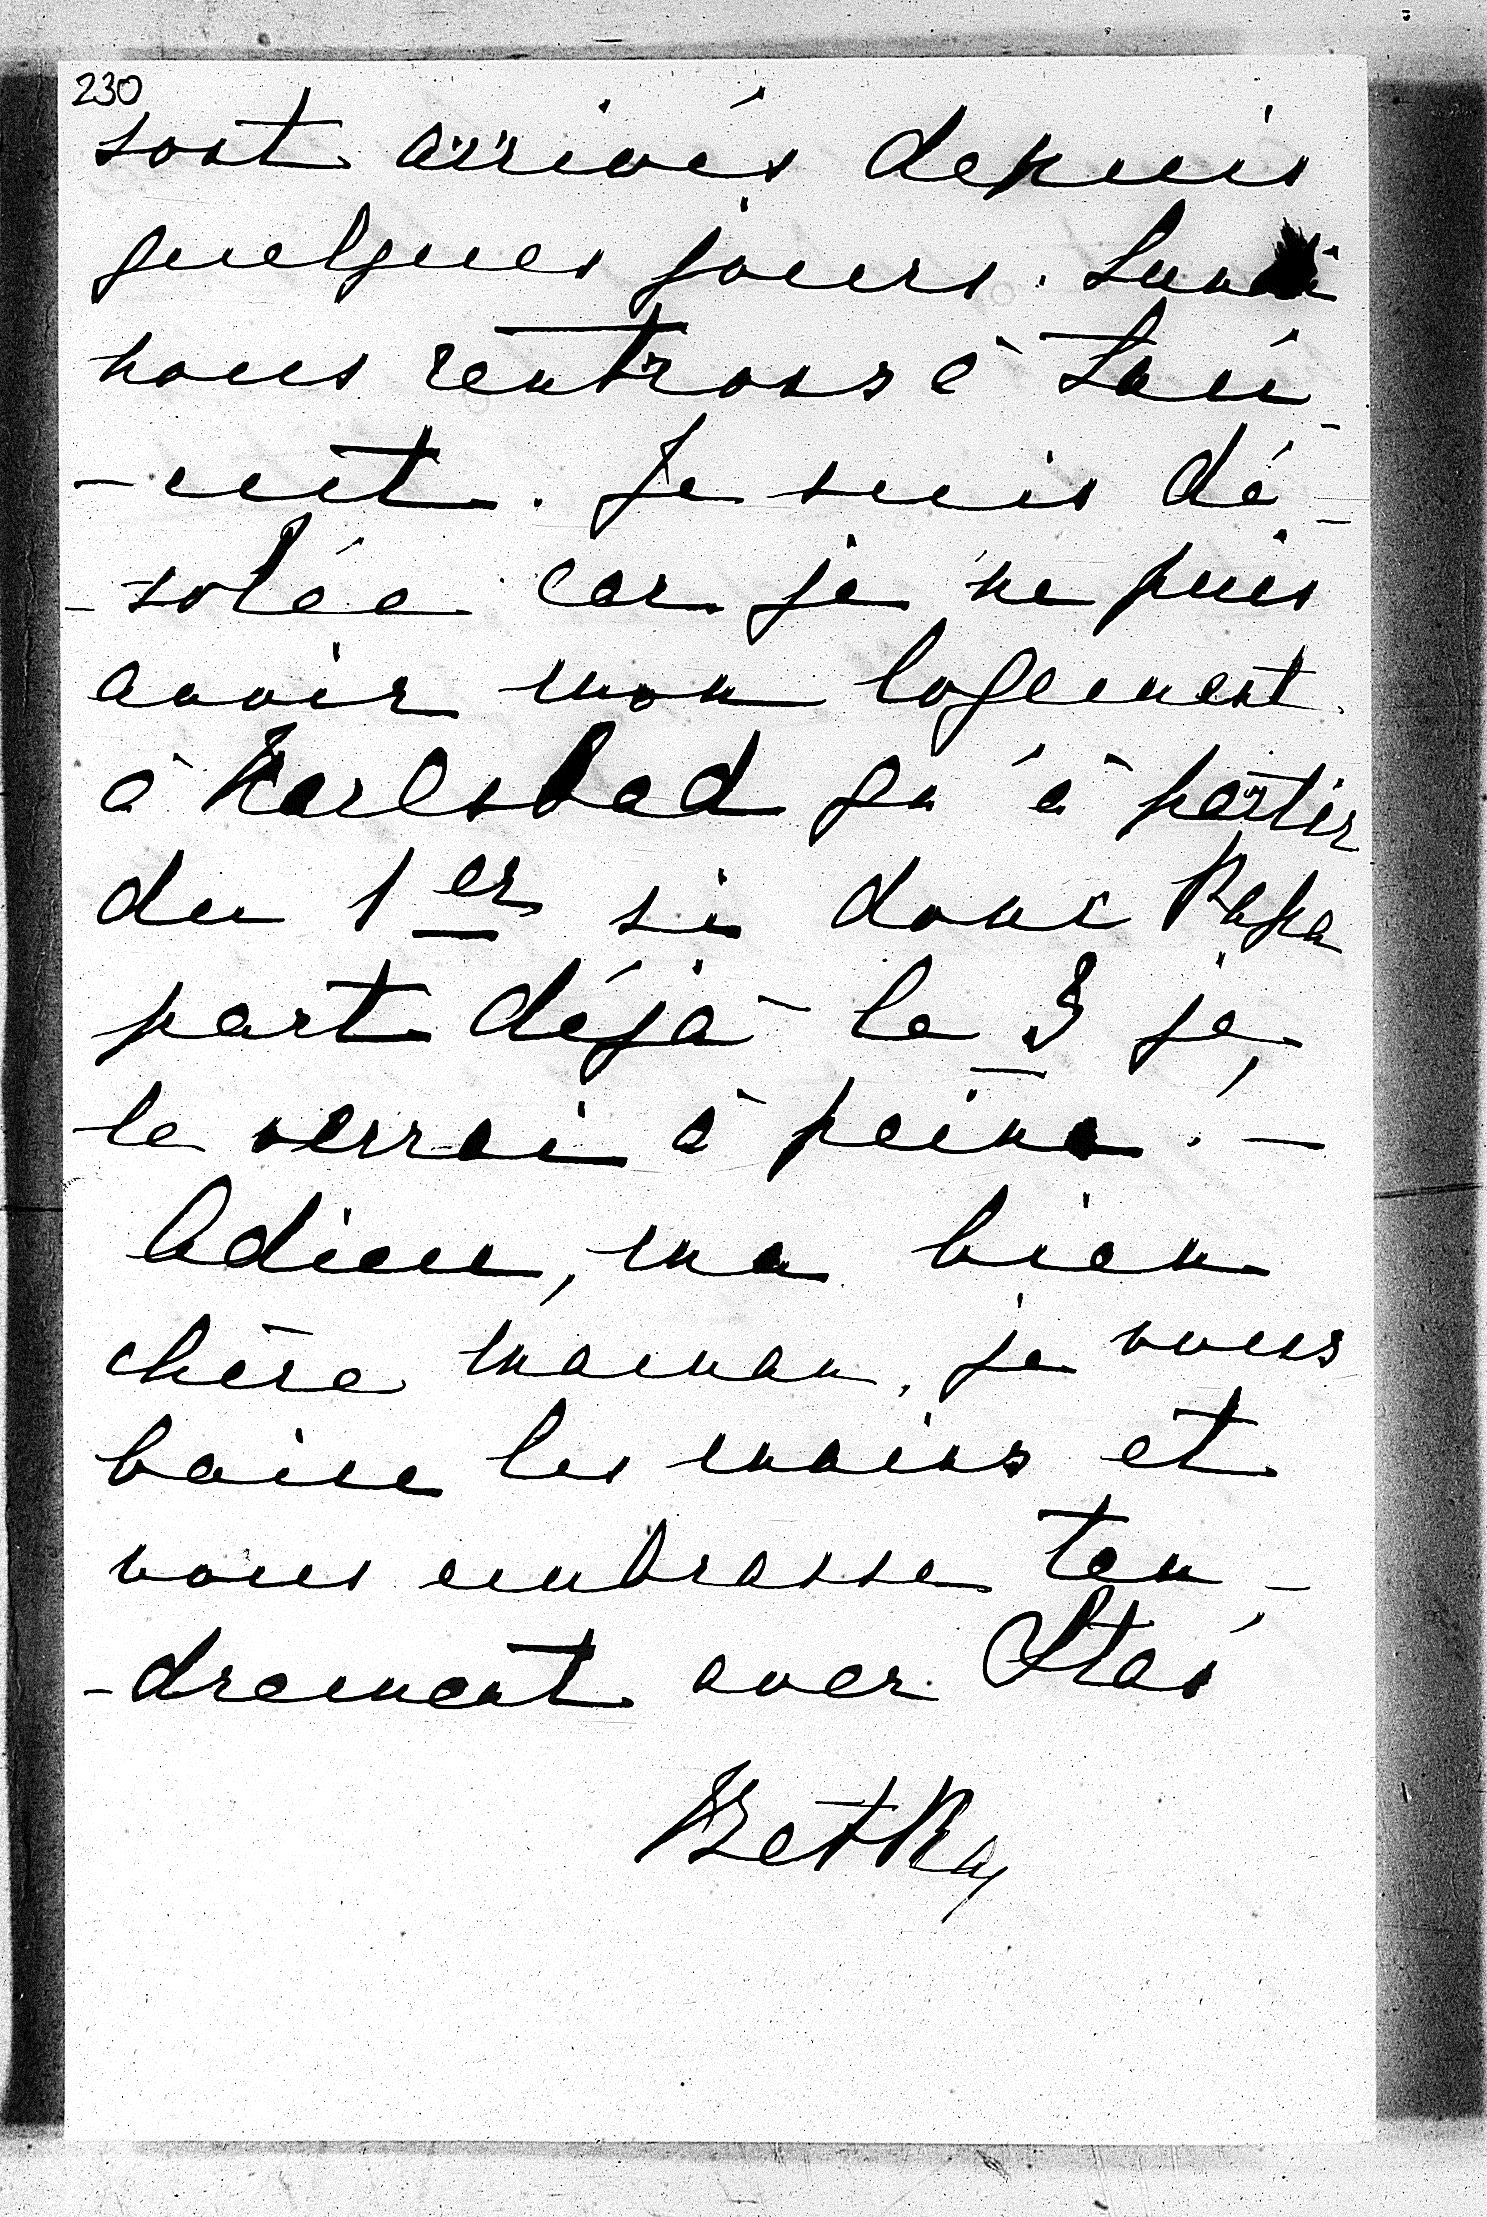 230
sont arrivés depuis
quelques jours. Lundi
nous rentrons à Łań-
-cut. Je suis dé-
-solée car je ne puis
avoir mon logement
à Karlsbad qu'à partir
du 1er si donc Papa
part déjà le 3 je
le verrai à peine. —
Adieu, ma bien
chère maman, je vous
baise les mains et
vous embrasse ten-
-drement avec Staś
Betka